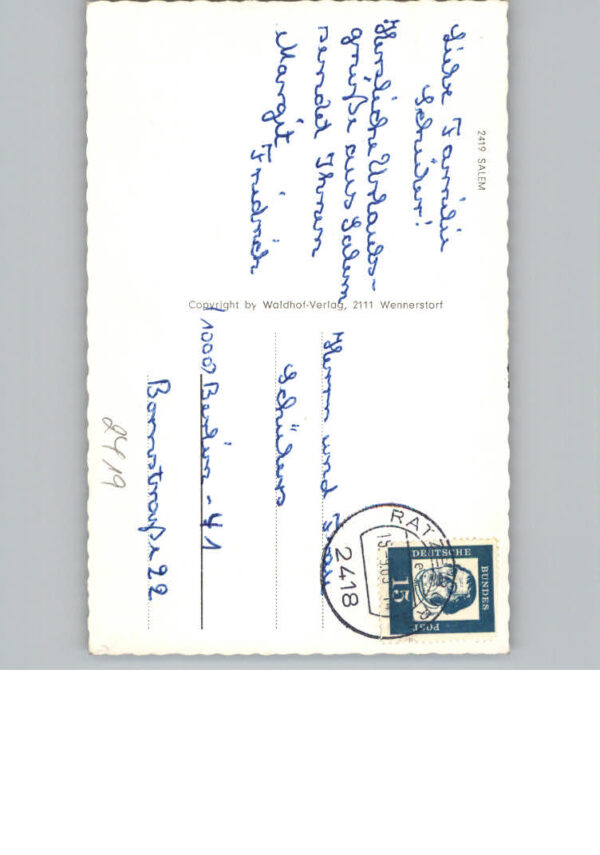 2419 SALEM
Liebe Familie
Schüler!
Herzliche Urlaubs-
grüße aus Salem
sendet Ihnen
Margit Friedrich
Copyright by Waldhof-Verlag, 2111 Wennerstorf
Herrn und Frau
Schülers
1000 Berlin - 41
Bornstraße 22
2419
RATZ
2418
DEUTSCHE
BUNDES
POST
15